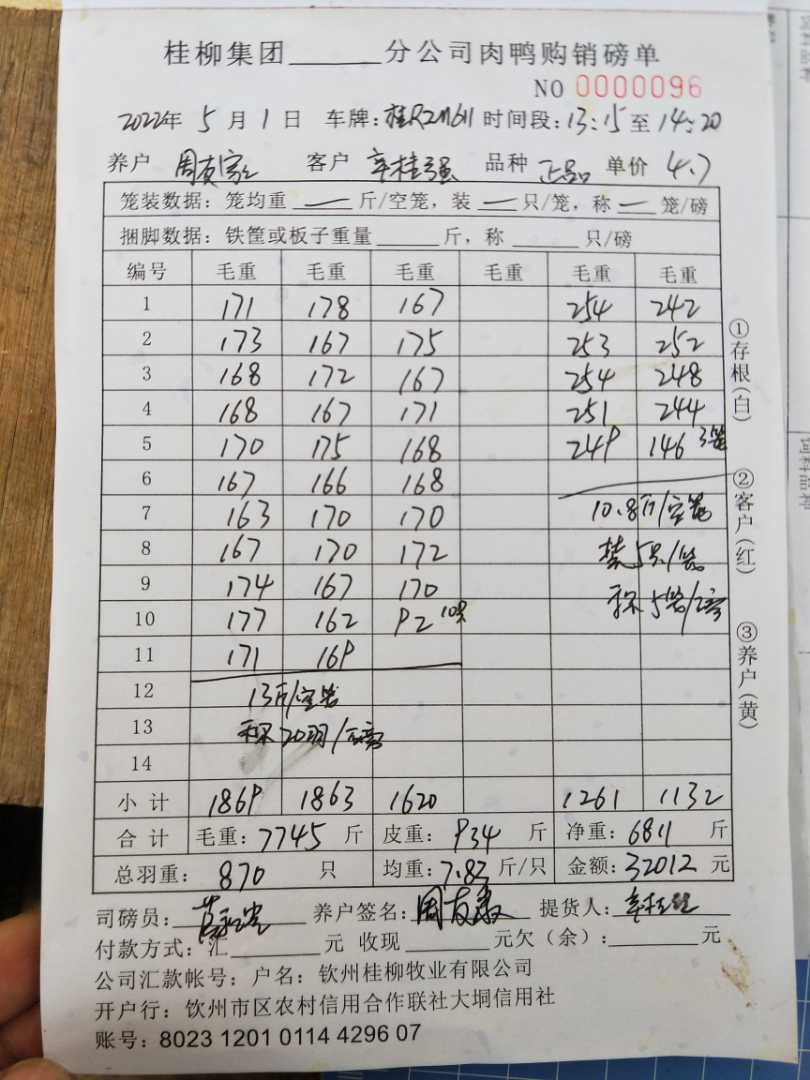 桂柳集团______分公司肉鸭购销磅单
NO 0000096
2022年 5月1日 车牌:桂R211611 时间段:13:15至14:20
养户 周友家 客户 辛桂强 品种 正品 单价 4.7
笼装数据:笼均重 — 斤/空笼,装 — 只/笼,称 — 笼/磅
捆脚数据:铁筐或板子重量______斤,称______只/磅
编号 毛重 毛重 毛重 毛重 毛重 毛重
1 171 178 167 254 242
2 173 167 175 253 252
3 168 172 167 254 248
4 168 167 171 251 244
5 170 175 168 249 146 3笼
6 167 166 168
7 163 170 170 10.8斤/空笼
8 167 170 172 装5只/笼
9 174 167 170 称5笼/磅
10 177 162 92 10只
11 171 169
12 13斤/空笼
13 称20羽/磅
14
小计 1869 1863 1620 1261 1132
合计 毛重:7745斤 皮重:934斤 净重:6811斤
总羽重:870只 均重:7.82斤/只 金额:32012元
司磅员: 养户签名: 提货人:
付款方式:汇______元 收现______元欠(余):______元
公司汇款帐号:户名:钦州桂柳牧业有限公司
开户行:钦州市区农村信用合作联社大垌信用社
账号:8023 1201 0114 4296 07
①存根(白)
②客户(红)
③养户(黄)